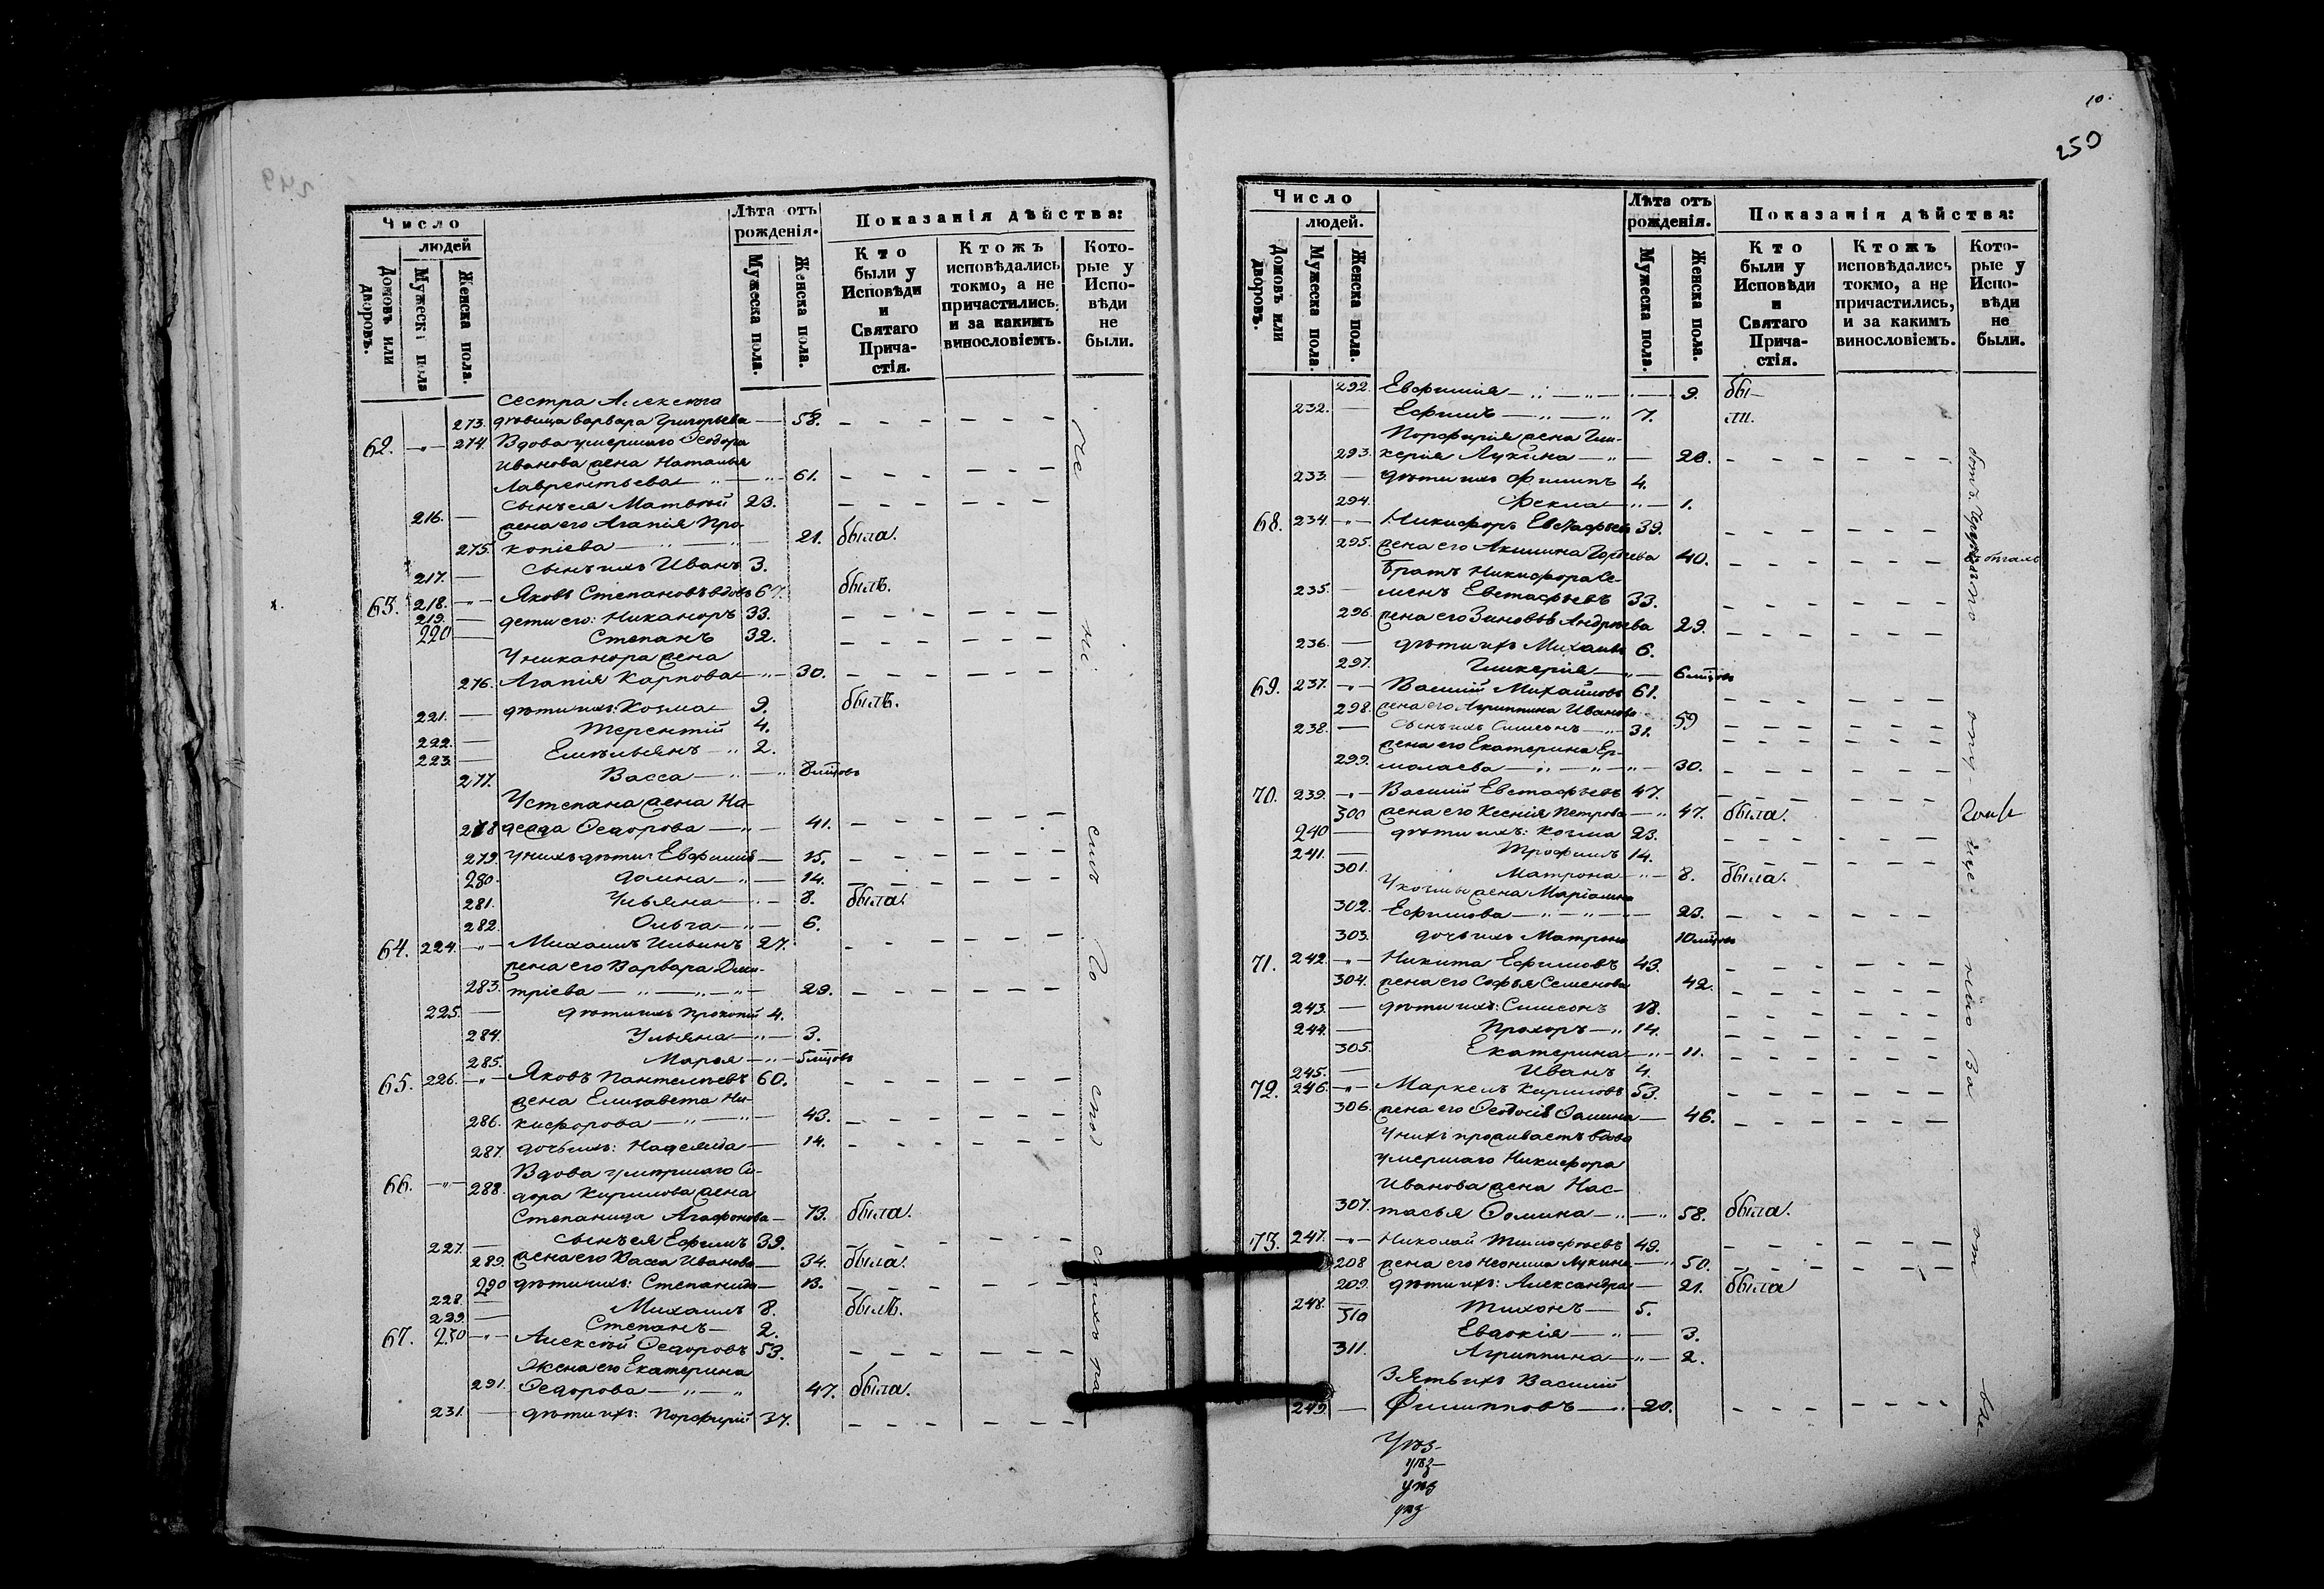 Число
людей
Домовъ или дворовъ.
Мужеска пола
Женска пола.
Лѣта отъ рожденія.
Мужеска пола.
Женска пола.
Показанія дѣйства:
Кто были у Исповѣди и Святаго Прича-стія.
Ктожъ исповѣдались токмо, а не причастились, и за какимъ винословіемъ.
Кото-рые у Испо-вѣди не были.
сестра Алексѣя
273. дѣвица Варвара Григорьева — 58. — — — — — —
62. —"— 274. Вдова умершаго Ѳеодора
Иванова жена Наталья
Лаврентьева — " — " — 61. — — — — — —
216. — сынъ ея Матвѣй 23. — — — — — —
жена его Агапія Про-
275. копіева — " — " — 21. была.
217. — сынъ ихъ Иванъ 3.
63. 218. —"— Яковъ Степановъ вдовъ 67. былъ.
219. — дети его: Никаноръ 33. — — — — — —
220 — Степанъ 32. — — — — — —
У никанора жена
276. Агапія Карпова — " — 30. — — — — — —
221. — дѣти ихъ: Козма — 9. былъ.
222. — Терентій 4.
223. — Емельянъ — " 2.
277. Васса — " — " 8 мѣсцовъ
У степана жена На-
278 дежда Ѳедорова — " — 41. — — — — — —
279. у нихъ дѣти: Евфимія — 15. — — — — — —
280. Домна — " — 14. — — — — — —
281. Ульяна — " — 8. была.
282. Ольга — " — 6.
64. 224. —"— Михаилъ Ильинъ 27. — — — — — —
жена его Варвара Дми-
283. тріева — " — " — " — 29. — — — — — —
225. — дѣти ихъ Прокопій 4.
284. Ульяна — " — 3.
285. Марья — " — 5 мѣсцовъ
65. 226. —"— Яковъ Пантелѣевъ 60. — — — — — —
жена Елизавета Ни-
286. кифорова — " — " — 43. — — — — — —
287. дочь ихъ: Надежда — 14. — — — — — —
Вдова умершаго Си-
66. —"— 288. дора Кирилова жена
Степанида Агафонова — 73. была.
227. — сынъ ея Ефимъ 39. — — — — — —
289. жена его Васса Иванова — 34. была.
290 дѣти ихъ: Степанида — 13. — — — — — —
228. — Михаилъ 8. былъ.
229. — Степанъ — 2.
67. 230 —"— Алексѣй Ѳедоровъ 53. — — — — — —
Жена его Екатерина
291. Ѳедорова — " — " 47. была.
231. — дѣти ихъ: Порфирій 37. — — — — — —
10.
250
Число
людей.
Домовъ или дворовъ.
Мужеска пола
Женска пола.
Лѣта отъ рожденія.
Мужеска пола.
Женска пола.
Показанія дѣйства:
Кто были у Исповѣди и Святаго Прича-стія.
Ктожъ исповѣдались токмо, а не причастились, и за какимъ винословіемъ.
Кото-рые у Испо-вѣди не были.
292. Евфимія — " — " — 9. бы-
232. — Ефимъ — " — " 7. ли.
Порфирія жена Гли-
293. керія Лукина — " — 28. — — — — — —
233. — дѣти ихъ Филипъ 4.
294. Фекла — " — 1.
68. 234. —"— Никифоръ Евстафьевъ 39. — — — — — —
295. жена его Акилина Гордѣева 40. — — — — — —
братъ Никифора Се-
235. — менъ Евстафьевъ 33. — — — — — —
296. жена его Зиновья Андреева 29. — — — — — —
236. — дѣти ихъ Михаилъ 6.
297. Гликерія — " — 6 мѣсцовъ
69. 237. —"— Василій Михайловъ 61. — — — — — —
298. жена его Агриппина Иванова 59 — — — — — —
238. — сынъ ихъ Симеонъ — " 31. — — — — — —
жена его Екатерина Ер-
299. молаева — " — " — " — 30. — — — — — —
70. 239. —"— Василій Евстафьевъ 47. — — — — — —
300 жена его Ксенія Петрова — " 47. была.
240 — дѣти ихъ: Козма 23. — — — — — —
241. — Трофимъ 14. — — — — — —
301. Матрона — " — 8. была.
У козмы жена Маріамна
302. Ефимова — " — " — 23. — — — — — —
303. дочь ихъ Матрона 10 мѣсцовъ
71. 242. —"— Никита Ефимовъ 43. — — — — — —
304. жена его Софья Семенова 42. — — — — — —
243. — дѣти ихъ: Симеонъ 18. — — — — — —
244. — Прохоръ — " 14. — — — — — —
305. Екатерина — " — 11. — — — — — —
245. — Иванъ 4.
72. 246. —"— Маркелъ Кириловъ 53. — — — — — —
306. жена его Ѳеодосія Ѳомина — 46. — — — — — —
У нихъ проживаетъ вдова
умершаго Никифора
Иванова жена Нас-
307. тасья Ѳомина — " — " 58. была.
73. 247. —"— Николай Тимофѣевъ 49. — — — — — —
208 жена его Неонила Лукина — " 50. — — — — — —
209. дѣти ихъ: Александра — 21. была
248. — Тихонъ — 5.
310 Евдокія — " — 3.
311. Агриппина — " — 2.
Зять ихъ Василій
249. — Филипповъ — " 20. — — — — — —